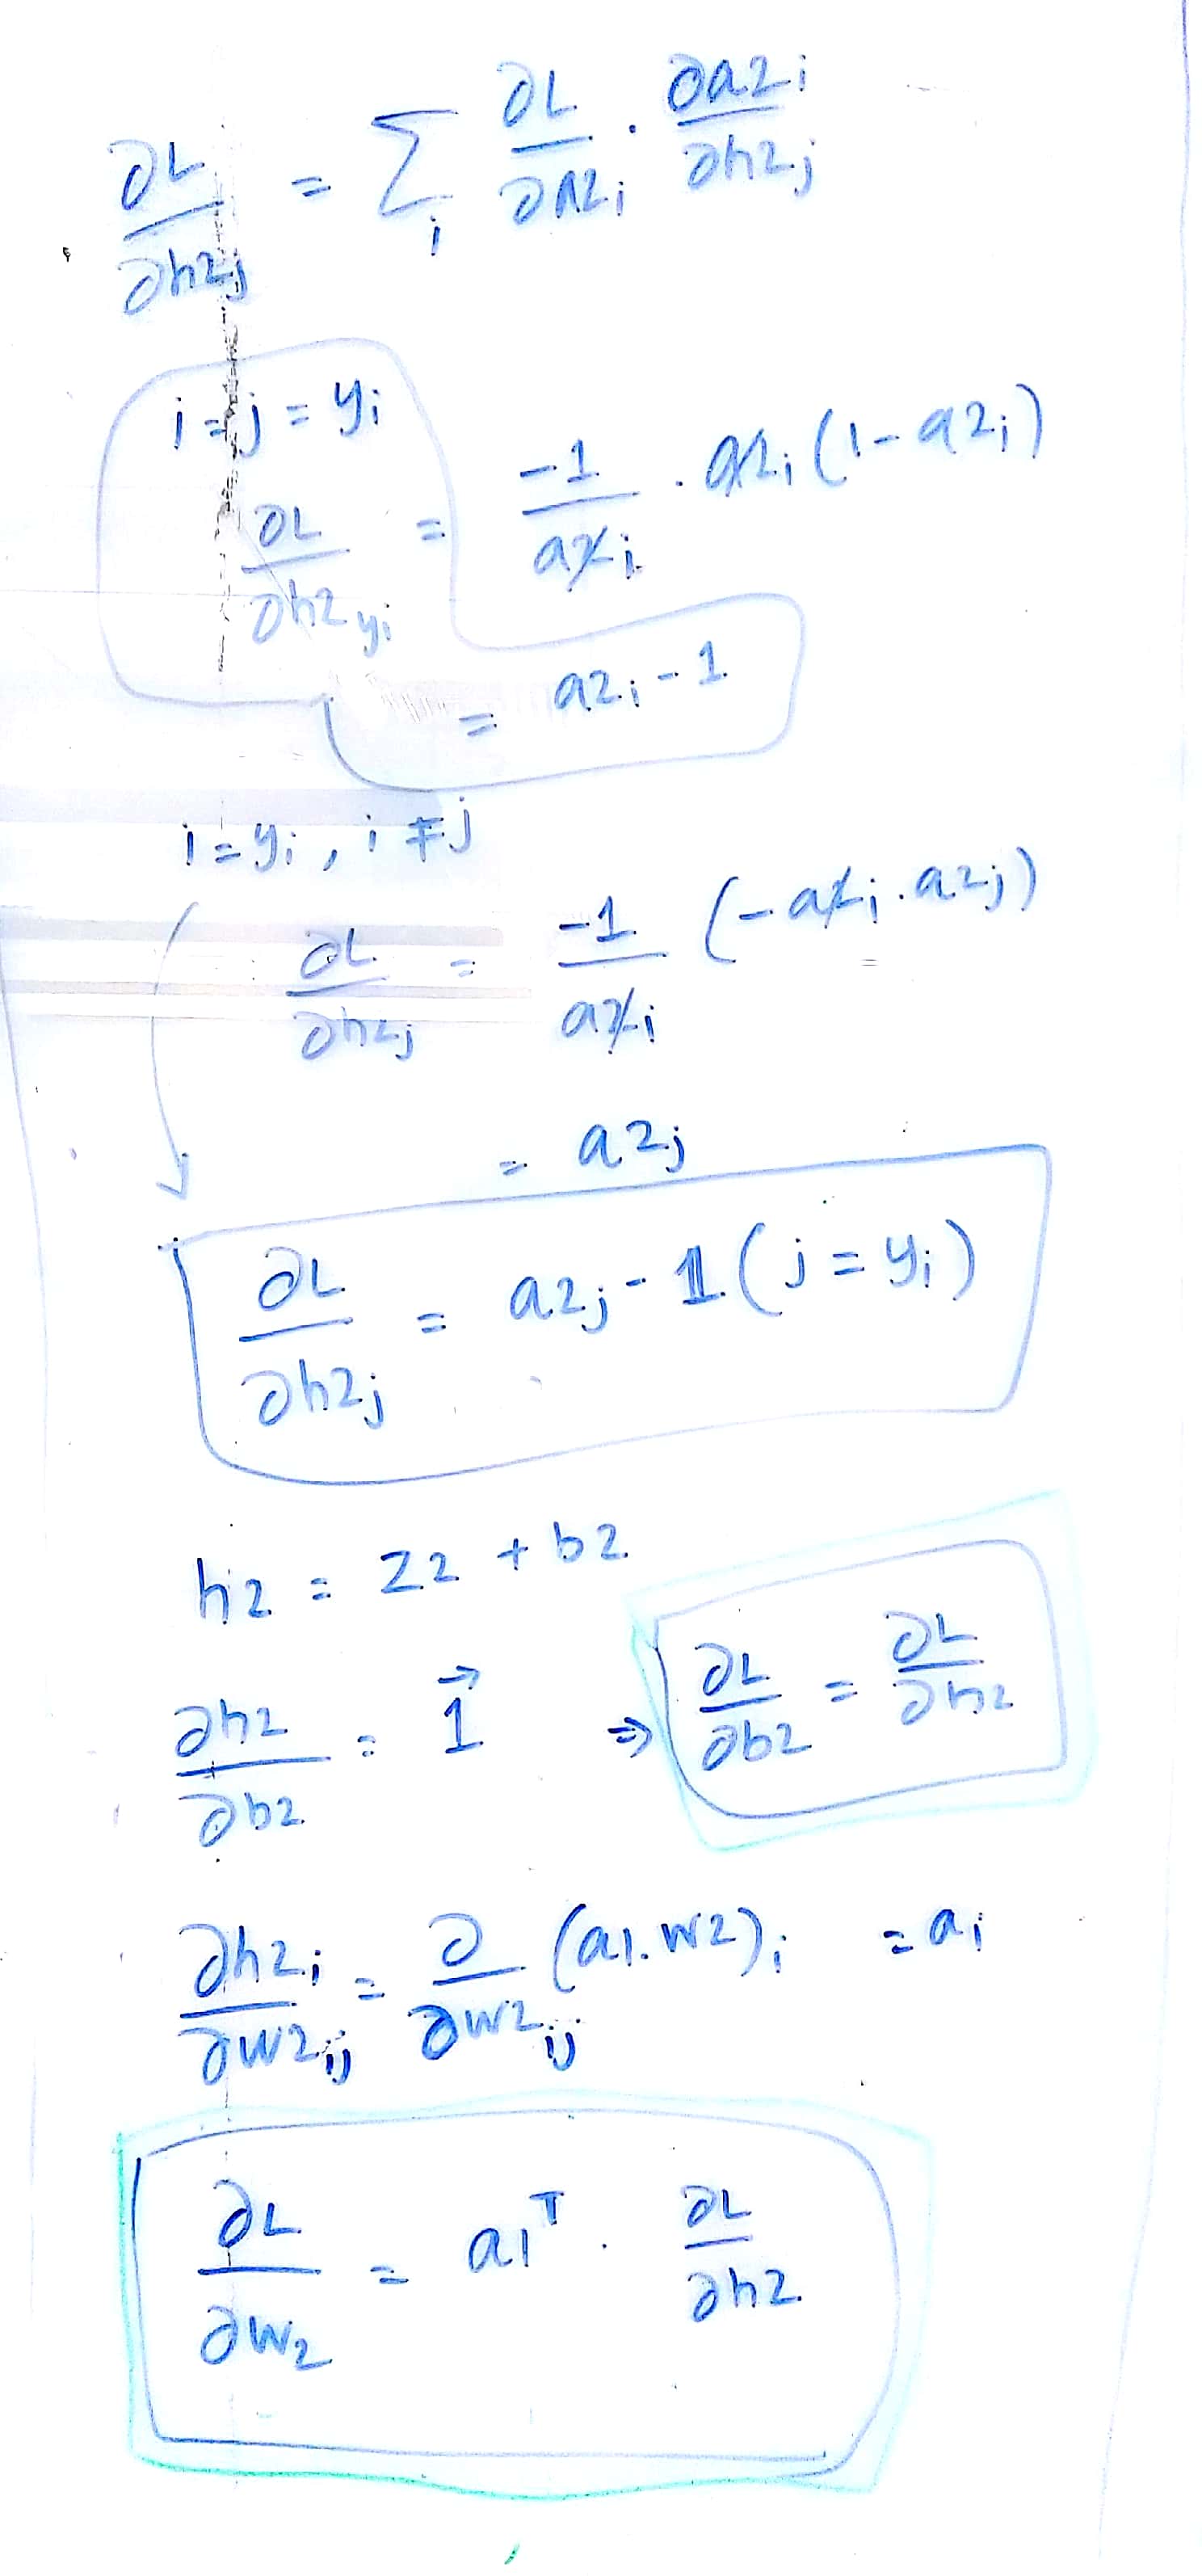 ∂L/∂h2j = Σi ∂L/∂a2i · ∂a2i/∂h2j
i = j = yi
∂L/∂h2yi = -1/a2i · a2i (1 - a2i)
= a2i - 1
i = yi , i ≠ j
∂L/∂h2j = -1/a2i (- a2i . a2j)
= a2j
∂L/∂h2j = a2j - 𝟙 ( j = yi )
h2 = z2 + b2
∂h2/∂b2 = 1⃗ ⇒ ∂L/∂b2 = ∂L/∂h2
∂h2i/∂w2ij = ∂/∂w2ij (a1.w2)i = ai
∂L/∂w2 = a1ᵀ . ∂L/∂h2